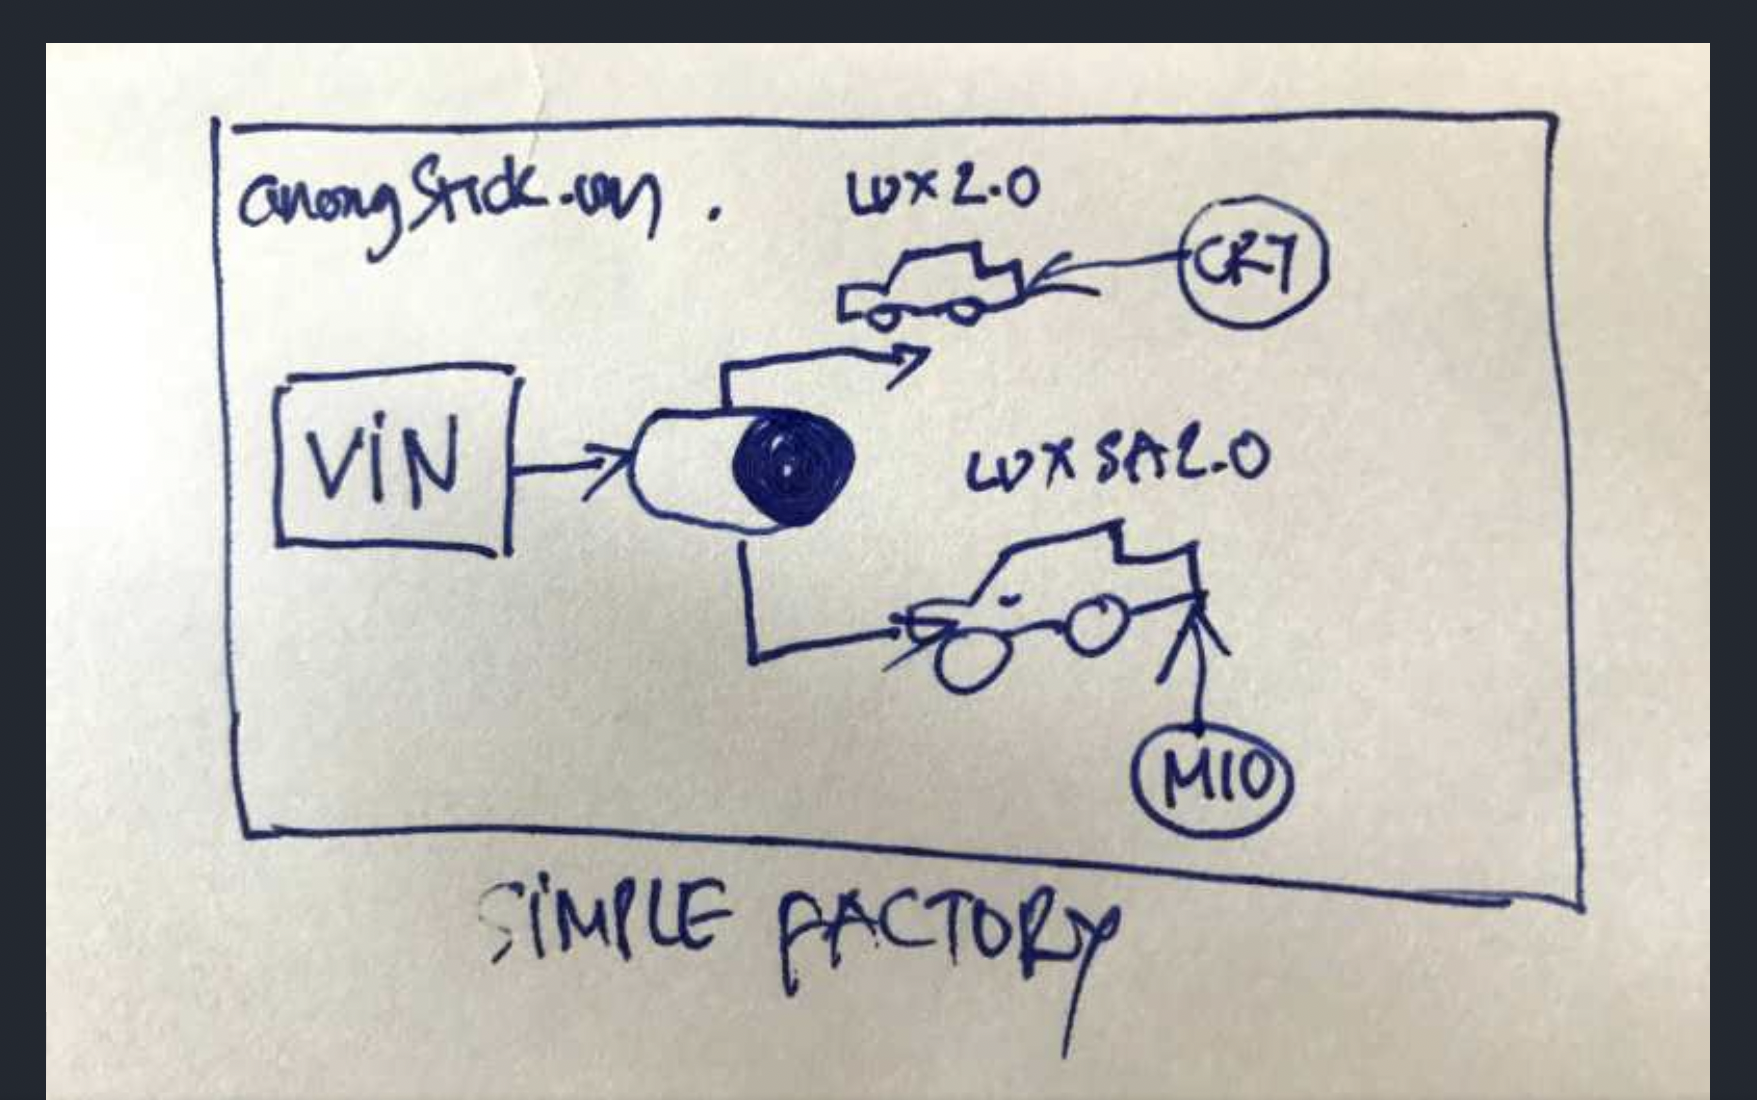 anongStick.com .
LUX 2.0
CR7
ViN
LUX SA2.0
M10
SiMPLE FACTORY